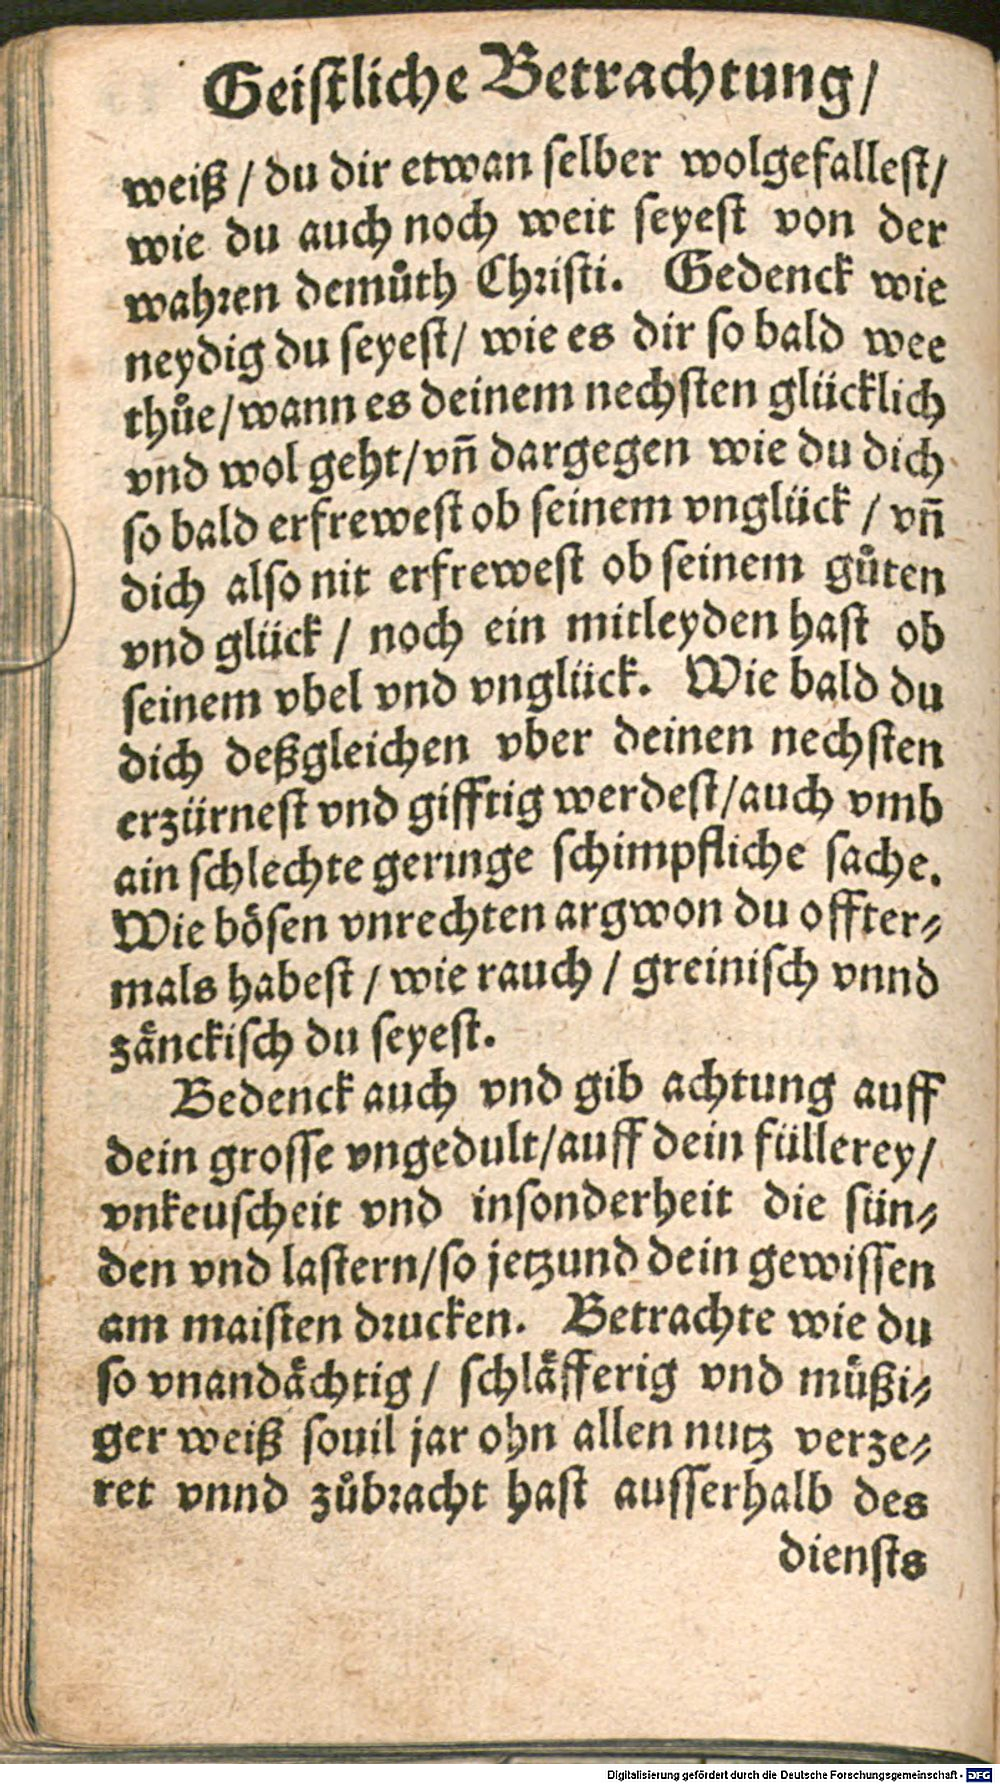 Geiſtliche Betrachtung/
weiß / du dir etwan ſelber wolgefalleſt/
wie du auch noch weit ſeyeſt von der
wahren demuͦth Chriſti. Gedenck wie
neydig du ſeyeſt/ wie es dir ſo bald wee
thuͦe/wann es deinem nechſten glücklich
vnd wol geht/vn̄ dargegen wie du dich
ſo bald erfreweſt ob ſeinem vnglück / vn̄
dich alſo nit erfreweſt ob ſeinem guͦten
vnd glück / noch ein mitleyden haſt ob
ſeinem vbel vnd vnglück. Wie bald du
dich deßgleichen vber deinen nechſten
erzürneſt vnd gifftig werdeſt/auch vmb
ain ſchlechte geringe ſchimpfliche ſache.
Wie böſen vnrechten argwon du offter⸗
mals habeſt / wie rauch / greiniſch vnnd
zaͤnckiſch du ſeyeſt.
Bedenck auch vnd gib achtung auff
dein groſſe vngedult/auff dein füllerey/
vnkeuſcheit vnd inſonderheit die ſün⸗
den vnd laſtern/ſo jetzund dein gewiſſen
am maiſten drucken. Betrachte wie du
ſo vnandaͤchtig / ſchlaͤfferig vnd müßi⸗
ger weiß ſouil jar ohn allen nutz verze⸗
ret vnnd zuͦbracht haſt auſſerhalb des
dienſts
Digitalisierung gefördert durch die Deutsche Forschungsgemeinschaft - DFG